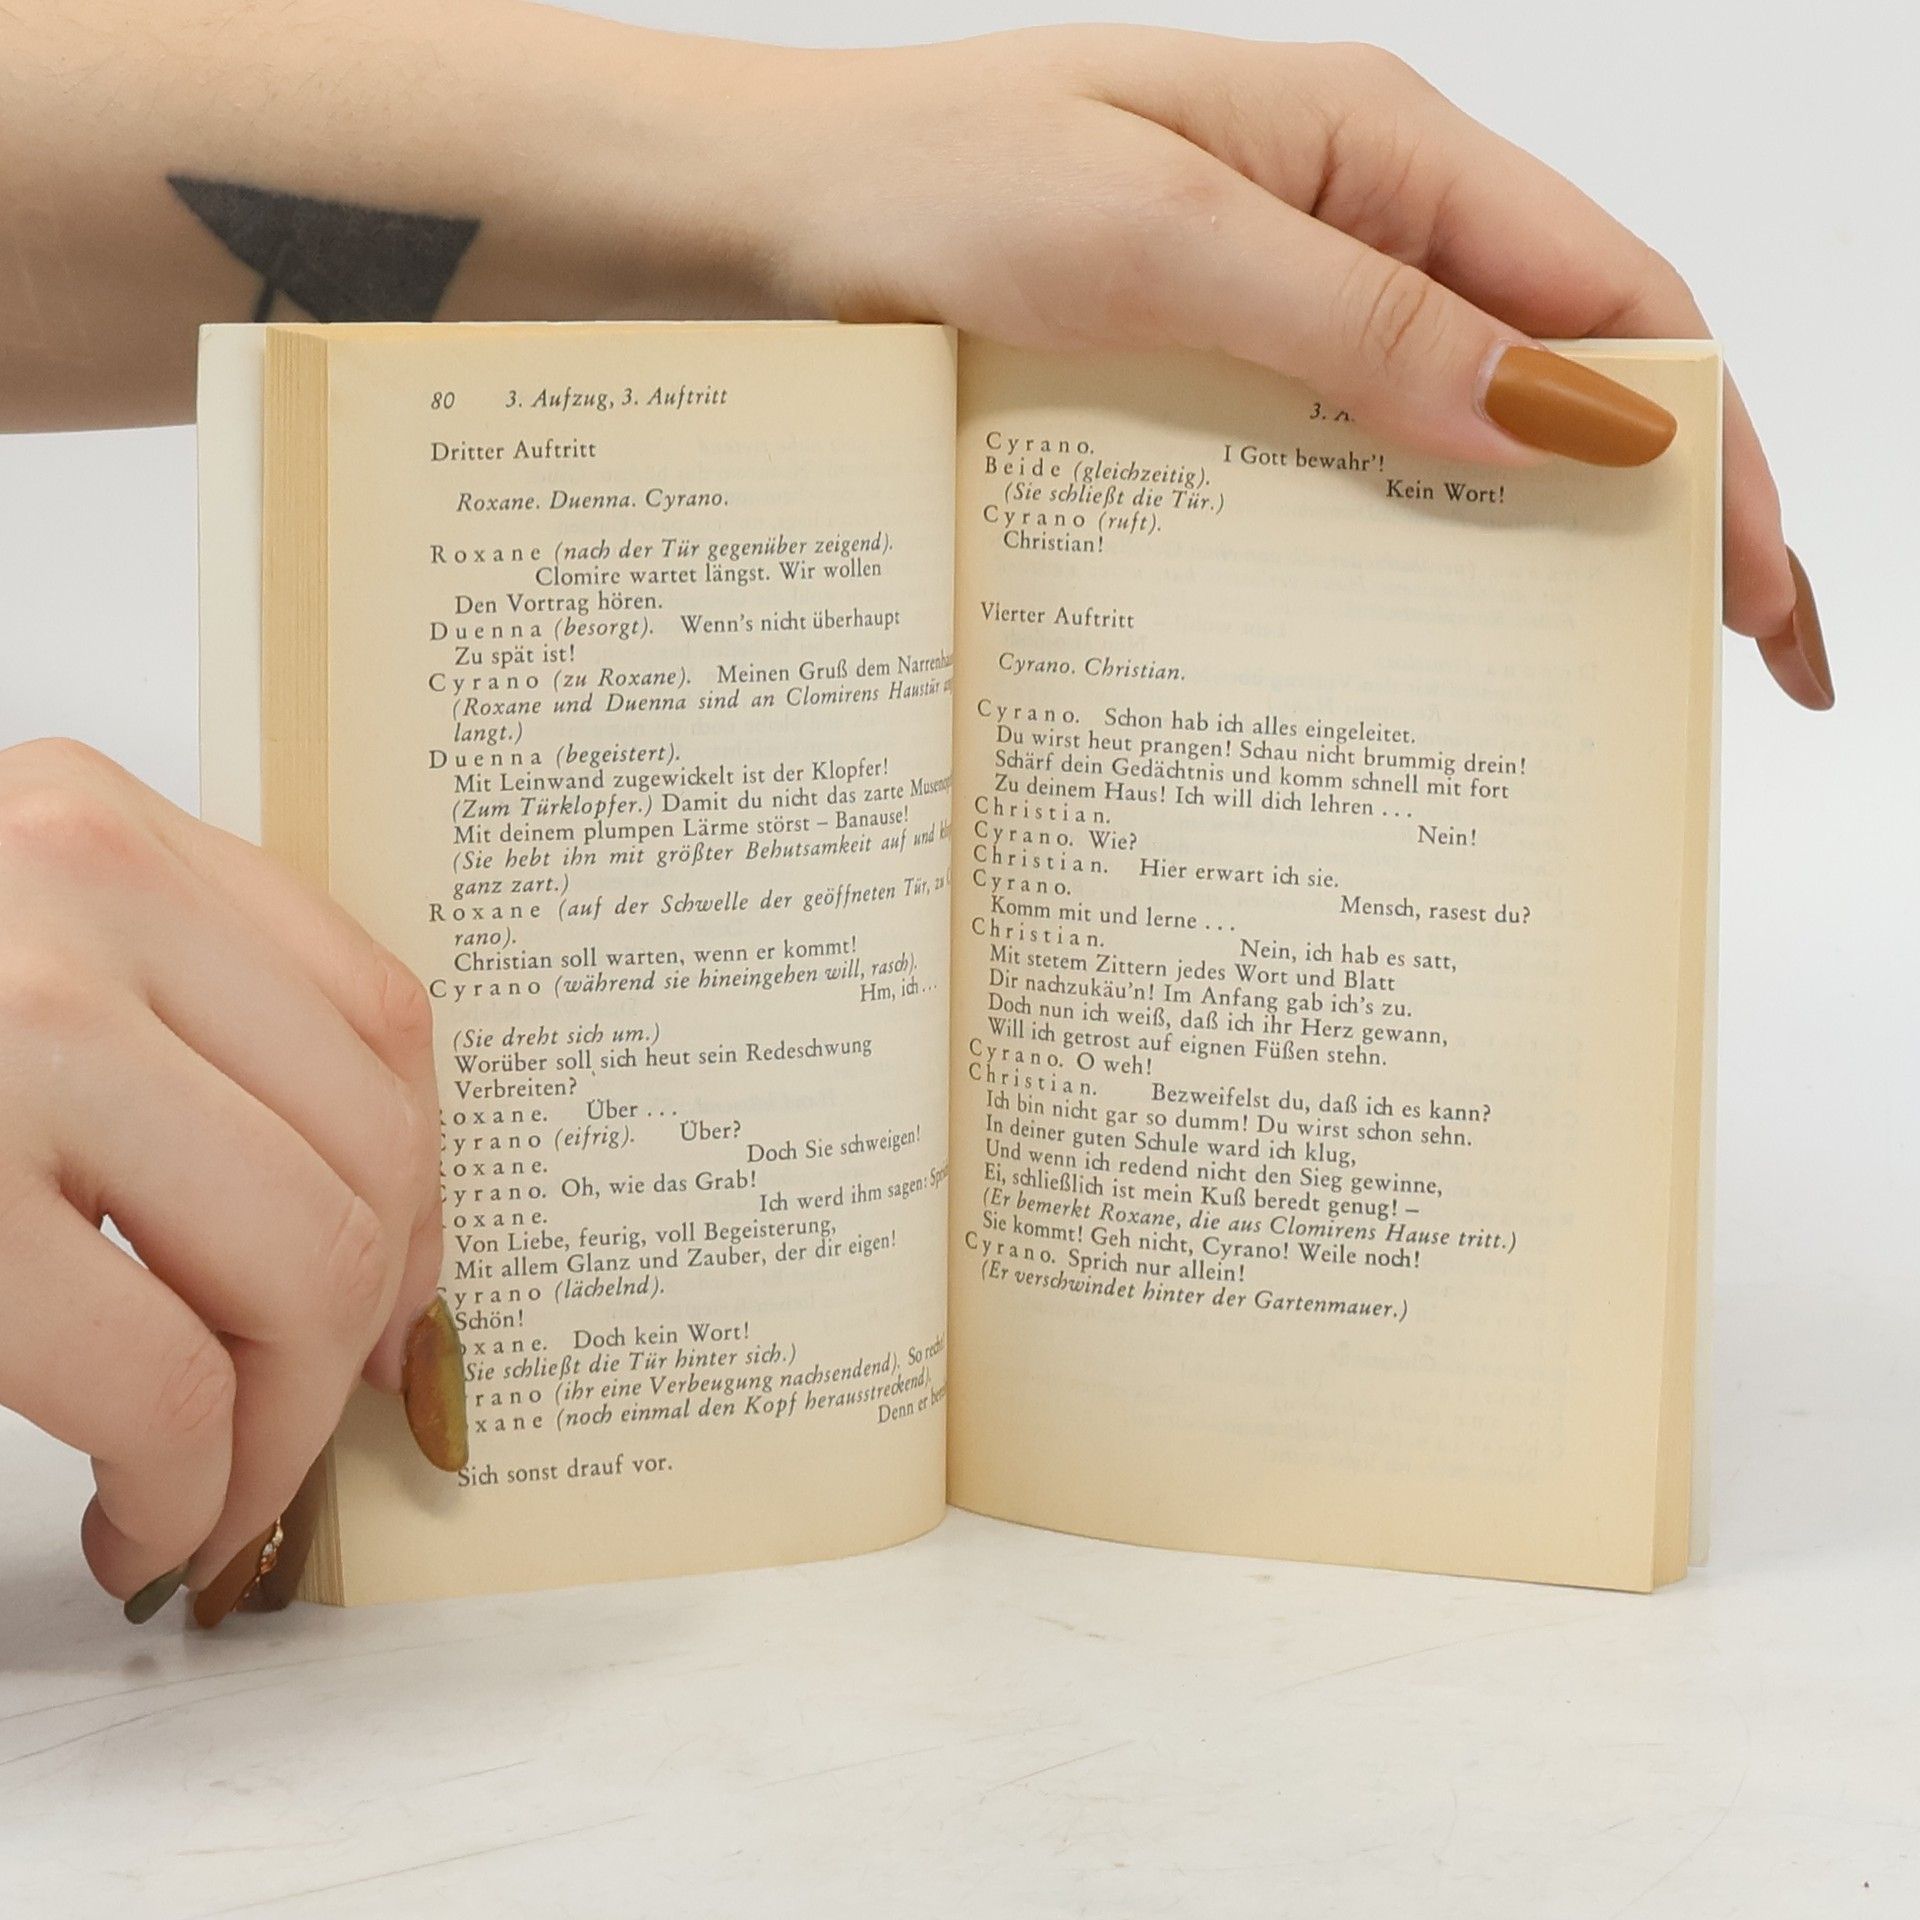 80 3. Aufzug, 3. Auftritt
Dritter Auftritt
Roxane. Duenna. Cyrano.
Roxane (nach der Tür gegenüber zeigend).
Clomire wartet längst. Wir wollen
Den Vortrag hören.
Duenna (besorgt). Wenn's nicht überhaupt
Zu spät ist!
Cyrano (zu Roxane). Meinen Gruß dem
(Roxane und Duenna sind an Clomirens Haustür
langt.)
Duenna (begeistert).
Mit Leinwand zugewickelt ist der Klopfer!
(Zum Türklopfer.) Damit du nicht das zarte
Mit deinem plumpen Lärme störst – Banause!
(Sie hebt ihn mit größter Behutsamkeit auf und
ganz zart.)
Roxane (auf der Schwelle der geöffneten Tür, zu
rano).
Christian soll warten, wenn er kommt!
Cyrano (während sie hineingehen will, rasch).
Hm, ich ...
(Sie dreht sich um.)
Worüber soll sich heut sein Redeschwung
Verbreiten?
oxane. Über ...
yrano (eifrig). Über?
oxane. Doch Sie schweigen!
yrano. Oh, wie das Grab!
oxane. Ich werd ihm sagen:
Von Liebe, feurig, voll Begeisterung,
Mit allem Glanz und Zauber, der dir eigen!
yrano (lächelnd).
Schön!
oxane. Doch kein Wort!
Sie schließt die Tür hinter sich.)
rano (ihr eine Verbeugung nachsendend). So
xane (noch einmal den Kopf herausstreckend).
Denn er
Sich sonst drauf vor.
3.
Cyrano. I Gott bewahr'!
Beide (gleichzeitig). Kein Wort!
(Sie schließt die Tür.)
Cyrano (ruft).
Christian!
Vierter Auftritt
Cyrano. Christian.
Cyrano. Schon hab ich alles eingeleitet.
Du wirst heut prangen! Schau nicht brummig drein!
Schärf dein Gedächtnis und komm schnell mit fort
Zu deinem Haus! Ich will dich lehren ...
Christian. Nein!
Cyrano. Wie?
Christian. Hier erwart ich sie.
Cyrano. Mensch, rasest du?
Komm mit und lerne ...
Christian. Nein, ich hab es satt,
Mit stetem Zittern jedes Wort und Blatt
Dir nachzukäu'n! Im Anfang gab ich's zu.
Doch nun ich weiß, daß ich ihr Herz gewann,
Will ich getrost auf eignen Füßen stehn.
Cyrano. O weh!
Christian. Bezweifelst du, daß ich es kann?
Ich bin nicht gar so dumm! Du wirst schon sehn.
In deiner guten Schule ward ich klug,
Und wenn ich redend nicht den Sieg gewinne,
Ei, schließlich ist mein Kuß beredt genug! –
(Er bemerkt Roxane, die aus Clomirens Hause tritt.)
Sie kommt! Geh nicht, Cyrano! Weile noch!
Cyrano. Sprich nur allein!
(Er verschwindet hinter der Gartenmauer.)